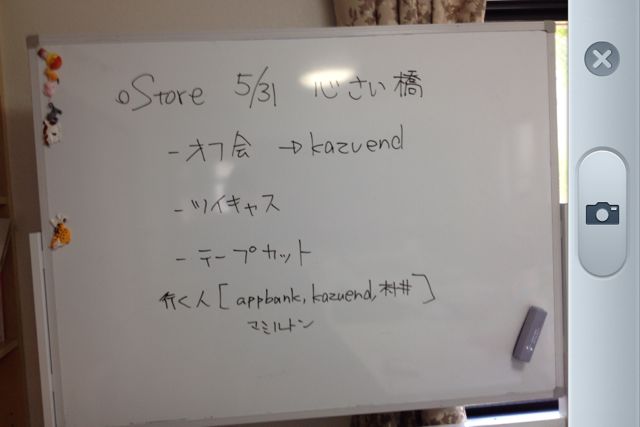 oStore 5/31 心さい橋
- オフ会 → kazuend
- ツイキャス
- テープカット
行く人 [appbank, kazuend, 村井]
マミルトン